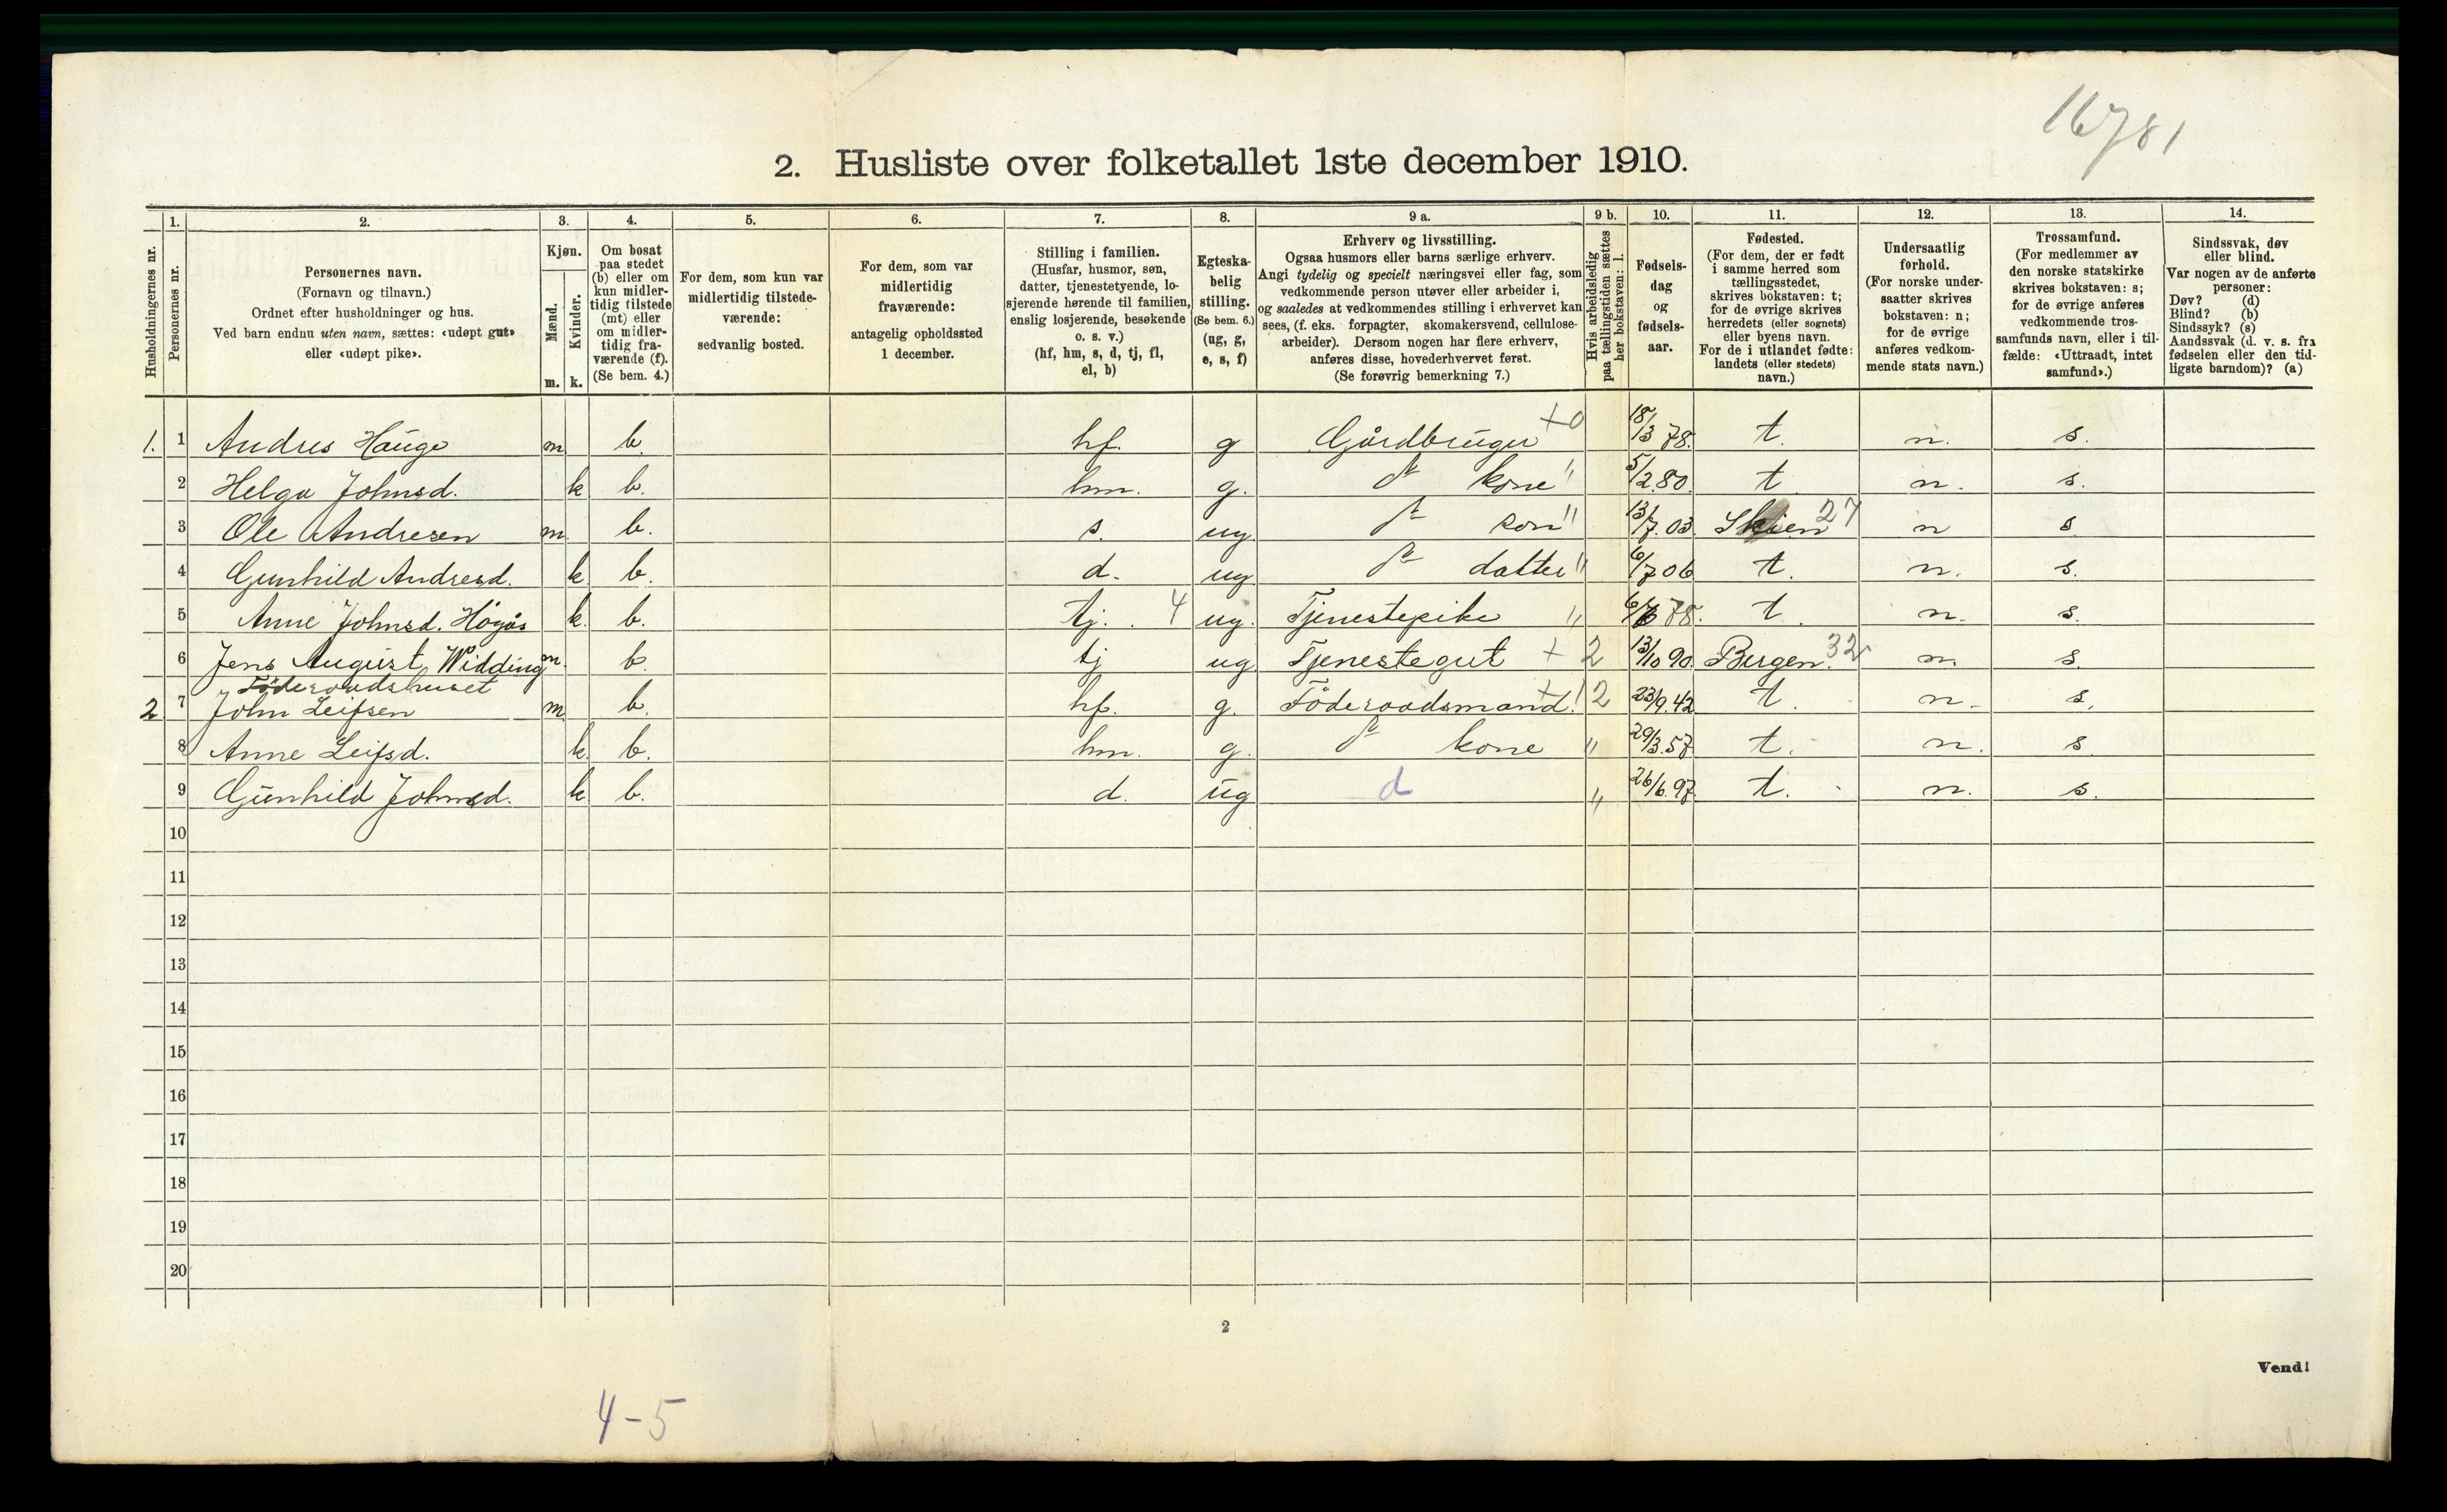 16781
2. Husliste over folketallet 1ste december 1910.
Husholdningernes nr.
1.
Personernes nr.
2.
Personernes navn.
(Fornavn og tilnavn.)
Ordnet efter husholdninger og hus.
Ved barn endnu uten navn, sættes: «udøpt gut»
eller «udøpt pike».
3.
Kjøn.
Mænd.
Kvinder.
m. k.
4.
Om bosat
paa stedet
(b) eller om
kun midler-
tidig tilstede
(mt) eller
om midler-
tidig fra-
værende (f).
(Se bem. 4.)
5.
For dem, som kun var
midlertidig tilstede-
værende:
sedvanlig bosted.
6.
For dem, som var
midlertidig
fraværende:
antagelig opholdssted
1 december.
7.
Stilling i familien.
(Husfar, husmor, søn,
datter, tjenestetyende, lo-
sjerende hørende til familien,
enslig losjerende, besøkende
o. s. v.)
(hf, hm, s, d, tj, fl,
el, b)
8.
Egteska-
belig
stilling.
(Se bem. 6.)
(ug, g,
e, s, f)
9 a.
Erhverv og livsstilling.
Ogsaa husmors eller barns særlige erhverv.
Angi tydelig og specielt næringsvei eller fag, som
vedkommende person utøver eller arbeider i,
og saaledes at vedkommendes stilling i erhvervet kan
sees, (f. eks. forpagter, skomakersvend, cellulose-
arbeider). Dersom nogen har flere erhverv,
anføres disse, hovederhvervet først.
(Se forøvrig bemerkning 7.)
9 b.
Hvis arbeidsledig
paa tællingstiden sættes
her bokstaven: l.
10.
Fødsels-
dag
og
fødsels-
aar.
11.
Fødested.
(For dem, der er født
i samme herred som
tællingsstedet,
skrives bokstaven: t;
for de øvrige skrives
herredets (eller sognets)
eller byens navn.
For de i utlandet fødte:
landets (eller stedets)
navn.)
12.
Undersaatlig
forhold.
(For norske under-
saatter skrives
bokstaven: n;
for de øvrige
anføres vedkom-
mende stats navn.)
13.
Trossamfund.
(For medlemmer av
den norske statskirke
skrives bokstaven: s;
for de øvrige anføres
vedkommende tros-
samfunds navn, eller i til-
fælde: «Uttraadt, intet
samfund».)
14.
Sindssvak, døv
eller blind.
Var nogen av de anførte
personer:
Døv? (d)
Blind? (b)
Sindssyk? (s)
Aandssvak (d. v. s. fra
fødselen eller den tid-
ligste barndom)? (a)
1. 1 Andres Hauge m b. hf. g Gårdbruger +0 18/13 78. t. n. s.
2 Helga Johnsd. k b. hm. g. do kone " 5/2 80. t. n. s.
3 Ole Andresen m. b. s. ug. do son " 13/7. 03. Skien 27 n s
4 Gunhild Andresd. k b. d. ug. do datter " 6/7 06 t. n. s.
5 Anne Johnsd. Högås k. b. tj. 4 ug. Tjenestepike " 78. t. n. s.
6 Jens August Widding m. b. tj ug Tjenestegut + 2 13/10 90. Bergen. 32 n. s.
Föderaadshuset
2 7 John Leifsen m b. hf. g. Föderaadsmand. + 2 23/9. 42 t. n. s.
8 Anne Leifsd. k b. hm. g. do kone " 29/3. 57 t. n. s
9 Gunhild Johnsd. k b. d. ug d " 26/6. 97 t. n. s.
10
11
12
13
14
15
16
17
18
19
20
2
Vend!
4-5